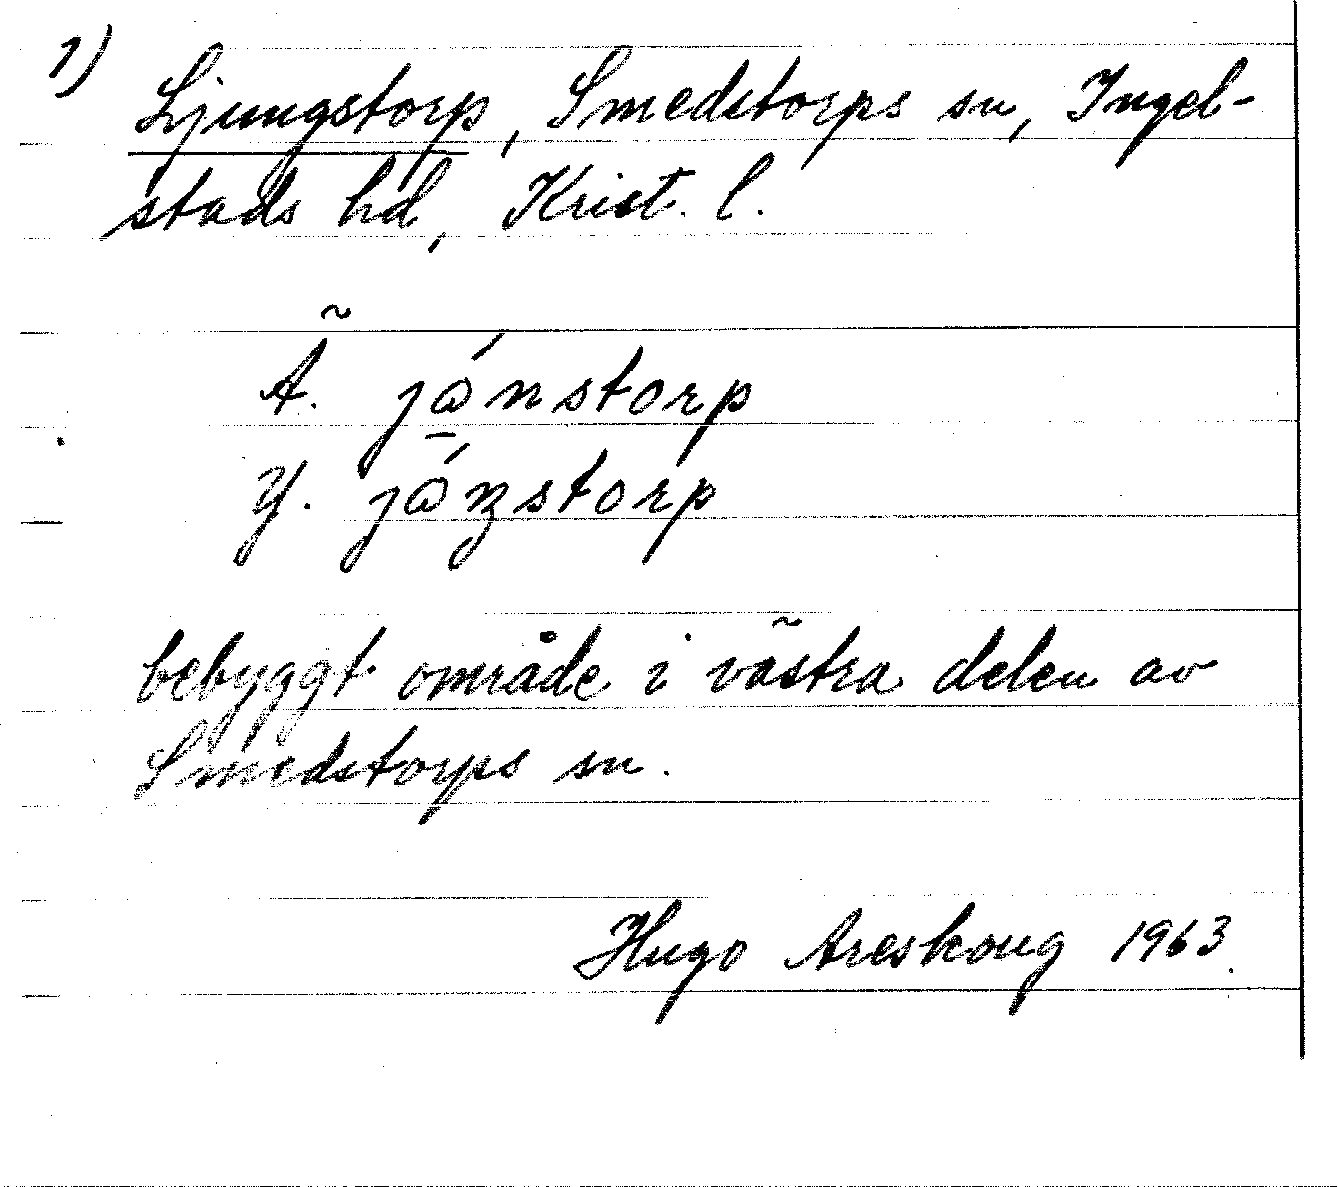 1) Ljungstorp, Smedstorps sn, Ingel-
stads hd, Krist. l.
Ä. jɷ́nstorp
Y. jɷ́nstorp
bebyggt område i västra delen av
Smedstorps sn.
Hugo Areskoug 1963.